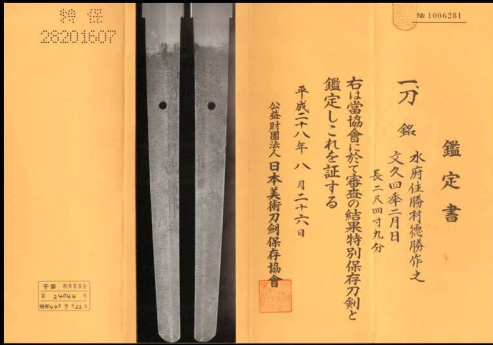 № 1006281
鑑定書
一刀 銘 水府住勝村徳勝作之
文久四季二月日
長二尺四寸九分
右は當協會に於て審査の結果特別保存刀剣と
鑑定しこれを証する
平成二十八年 八月二十六日
公益財團法人 日本美術刀劍保存協會
特保
28201607
千葉 教育委員会
第 24044 号